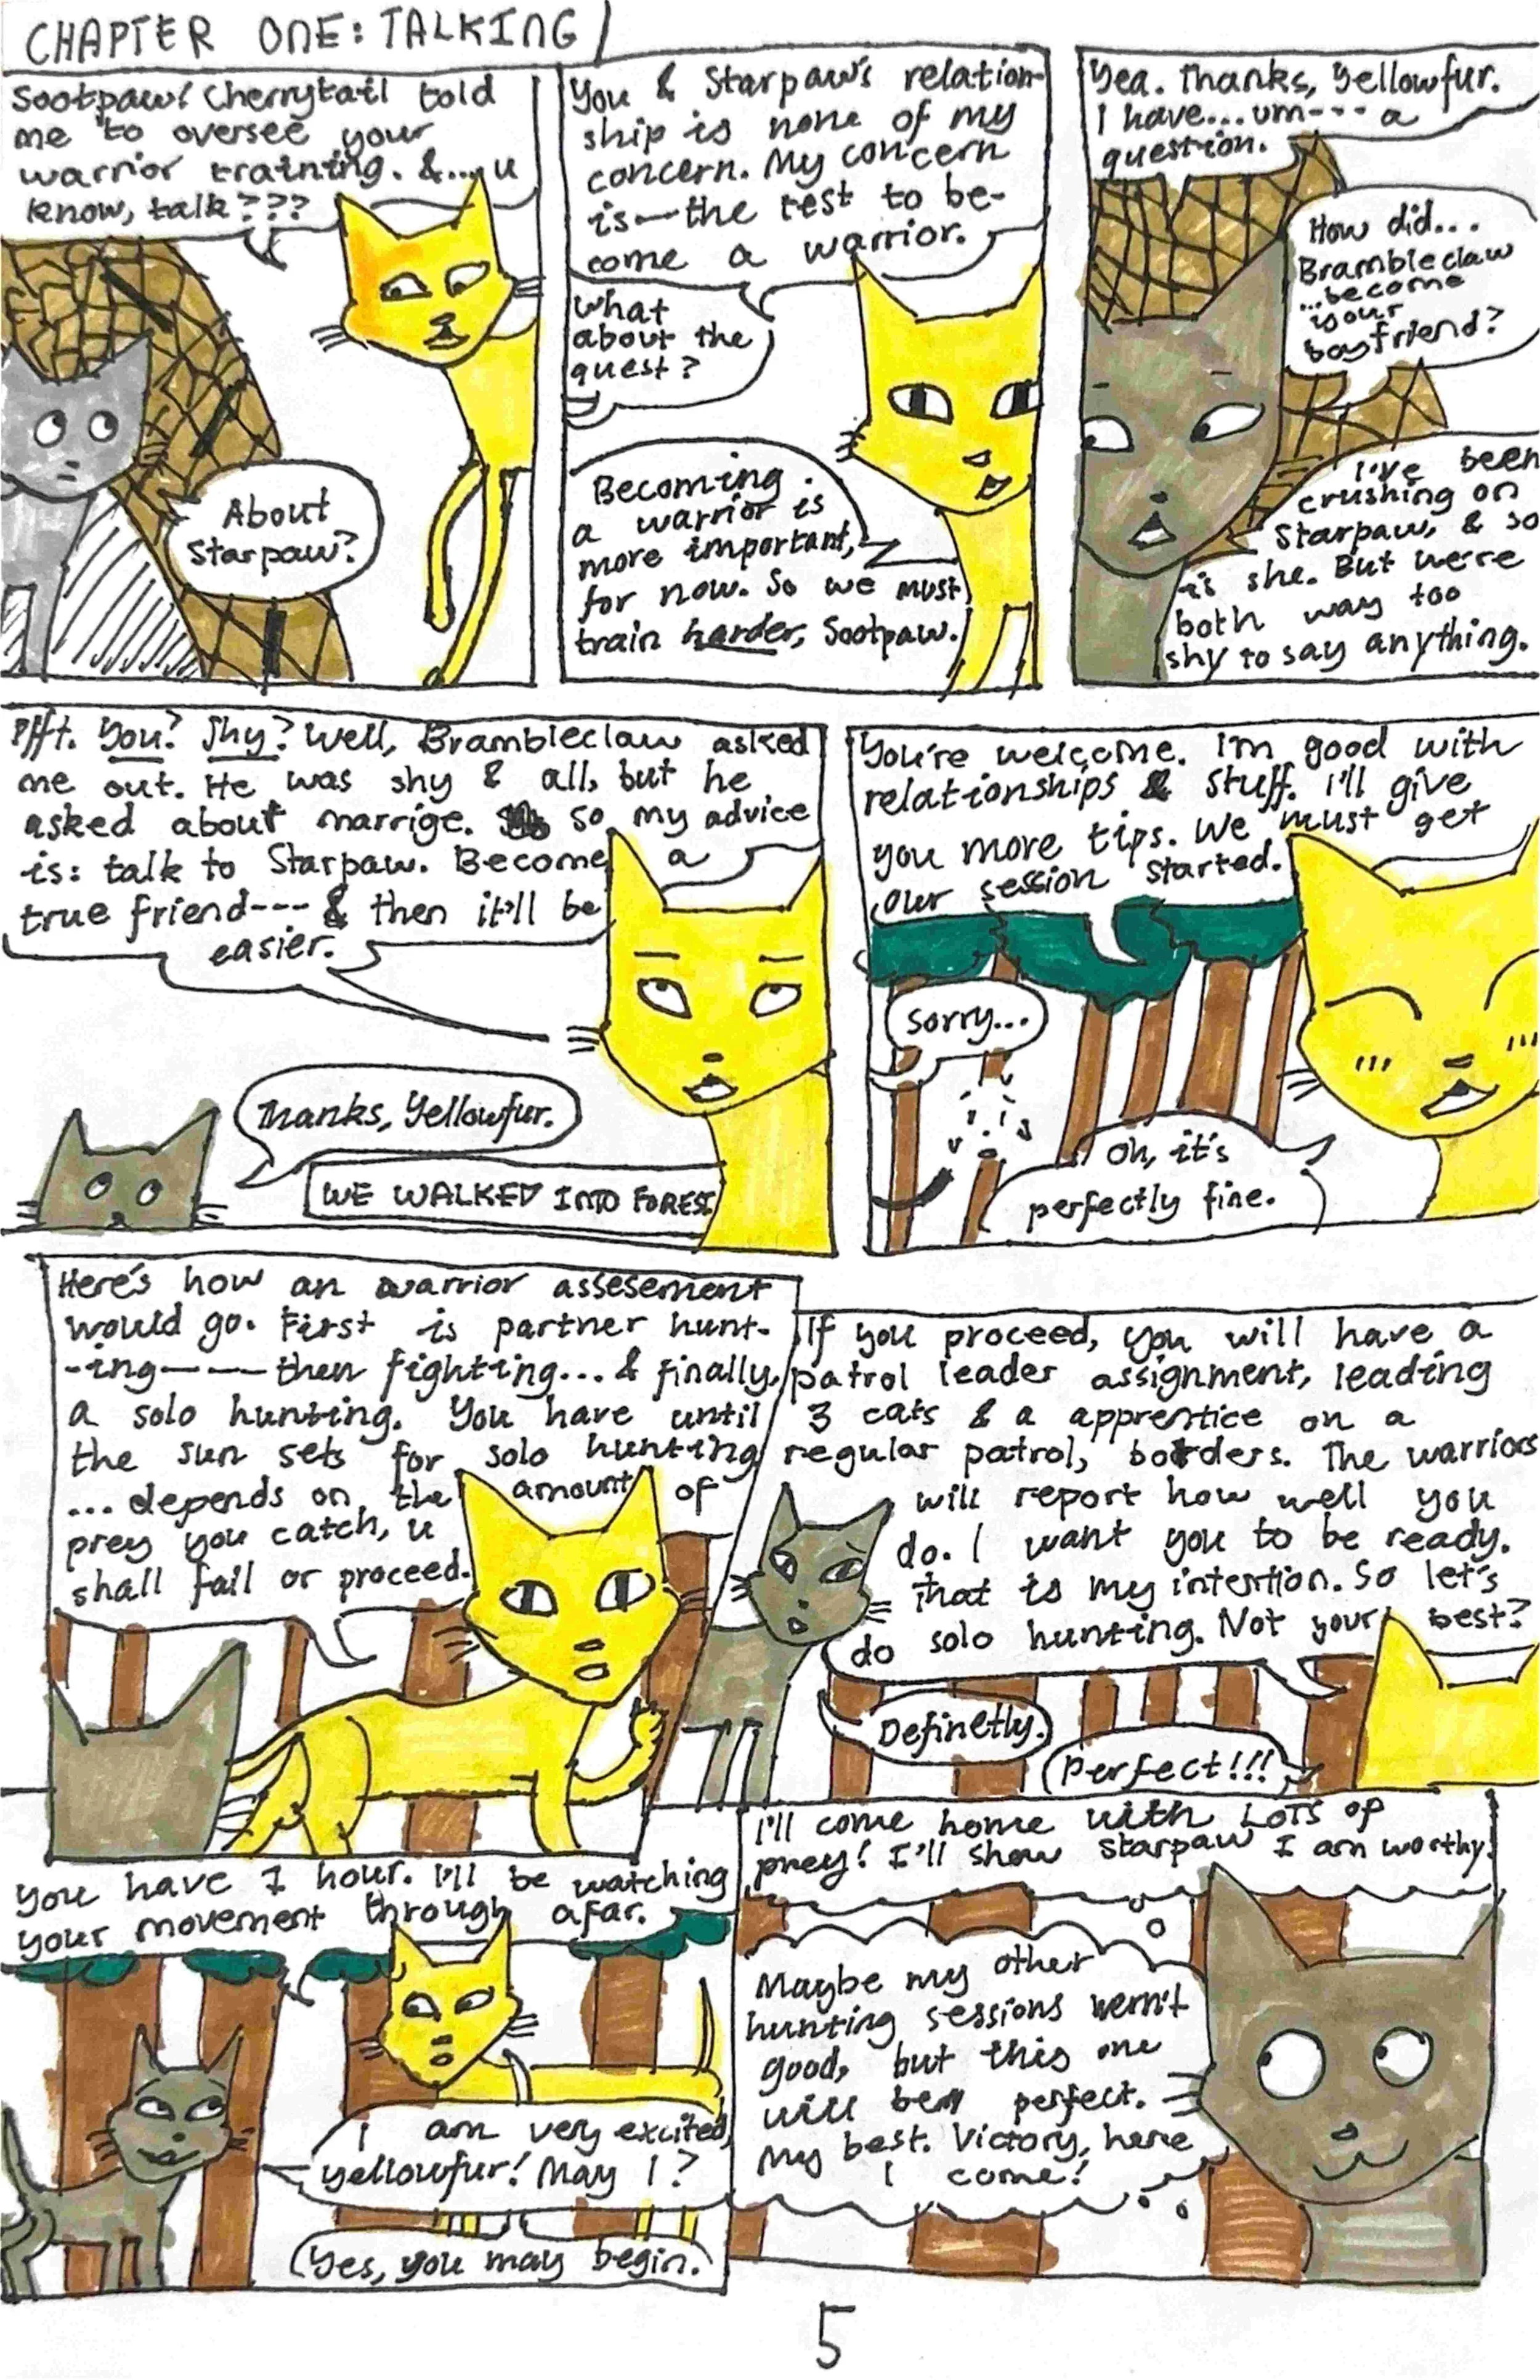 CHAPTER ONE: TALKING
Sootpaw! Cherrytail told
me to oversee your
warrior training. &... u
know, talk???
About
Starpaw?
You & Starpaw's relation-
ship is none of my
concern. My concern
is—the test to be-
come a warrior.
What
about the
quest?
Becoming
a warrior is
more important,
for now. So we must
train harder, Sootpaw.
Yea. Thanks, Yellowfur.
I have... um--- a
question.
How did...
Brambleclaw
...become
your
boyfriend?
I've been
crushing on
Starpaw, & so
is she. But we're
both way too
shy to say anything.
Pfft. You? Shy? Well, Brambleclaw asked
me out. He was shy & all, but he
asked about marrige. So my advice
is: talk to Starpaw. Become a
true friend--- & then it'll be
easier.
Thanks, Yellowfur.
WE WALKED INTO FOREST
You're welcome. I'm good with
relationships & stuff. I'll give
you more tips. We must get
our session started.
Sorry...
Oh, it's
perfectly fine.
Here's how an warrior assesement
would go. First is partner hunt-
-ing—— then fighting... & finally,
a solo hunting. You have until
the sun sets for solo hunting
... depends on the amount of
prey you catch, u
shall fail or proceed.
If you proceed, you will have a
patrol leader assignment, leading
3 cats & a apprentice on a
regular patrol, borders. The warriors
will report how well you
do. I want you to be ready.
That is my intention. So let's
do solo hunting. Not your best?
Definetly.
Perfect!!!
You have 1 hour. I'll be watching
your movement through afar.
I am very excited,
Yellowfur! May I?
Yes, you may begin.
I'll come home with LOTS of
prey! I'll show Starpaw I am worthy!
Maybe my other
hunting sessions wern't
good, but this one
will be perfect.
My best. Victory, here
I come!
5